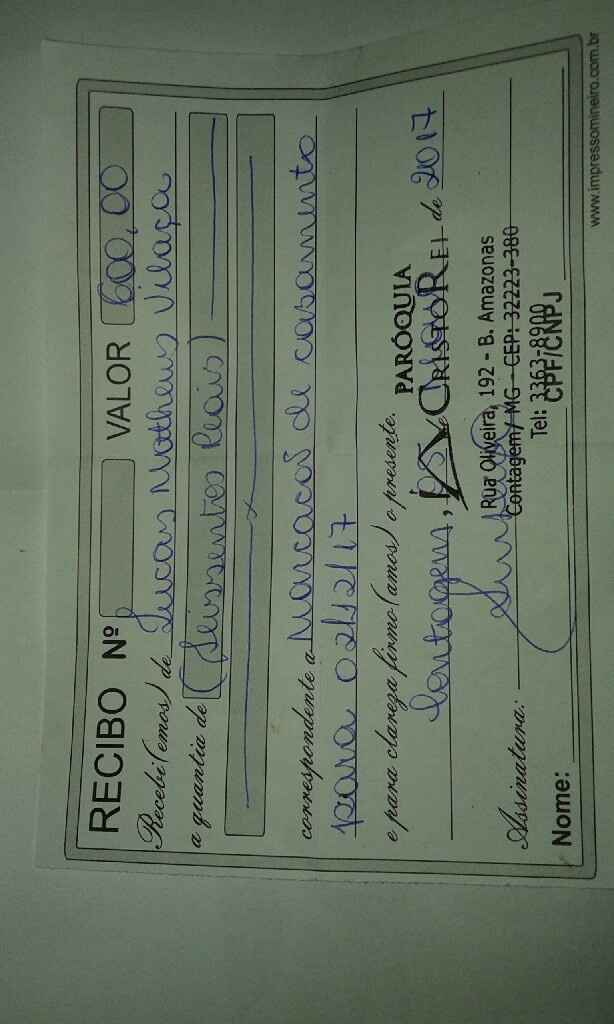 RECIBO Nº VALOR 600,00
Recebi(emos) de Lucas Matheus Vilaça
a quantia de (Seissentos Reais)
correspondente a Marcacos de casamento
para 02/12/17
e para clareza firmo(amos) o presente.
PARÓQUIA
Contagem, de CRISTO REI de 2017
Rua Oliveira, 192 - B. Amazonas
Contagem/ MG - CEP: 32223-380
Assinatura:
Tel: 3363-8900
Nome: CPF/CNPJ
www.impressomineiro.com.br